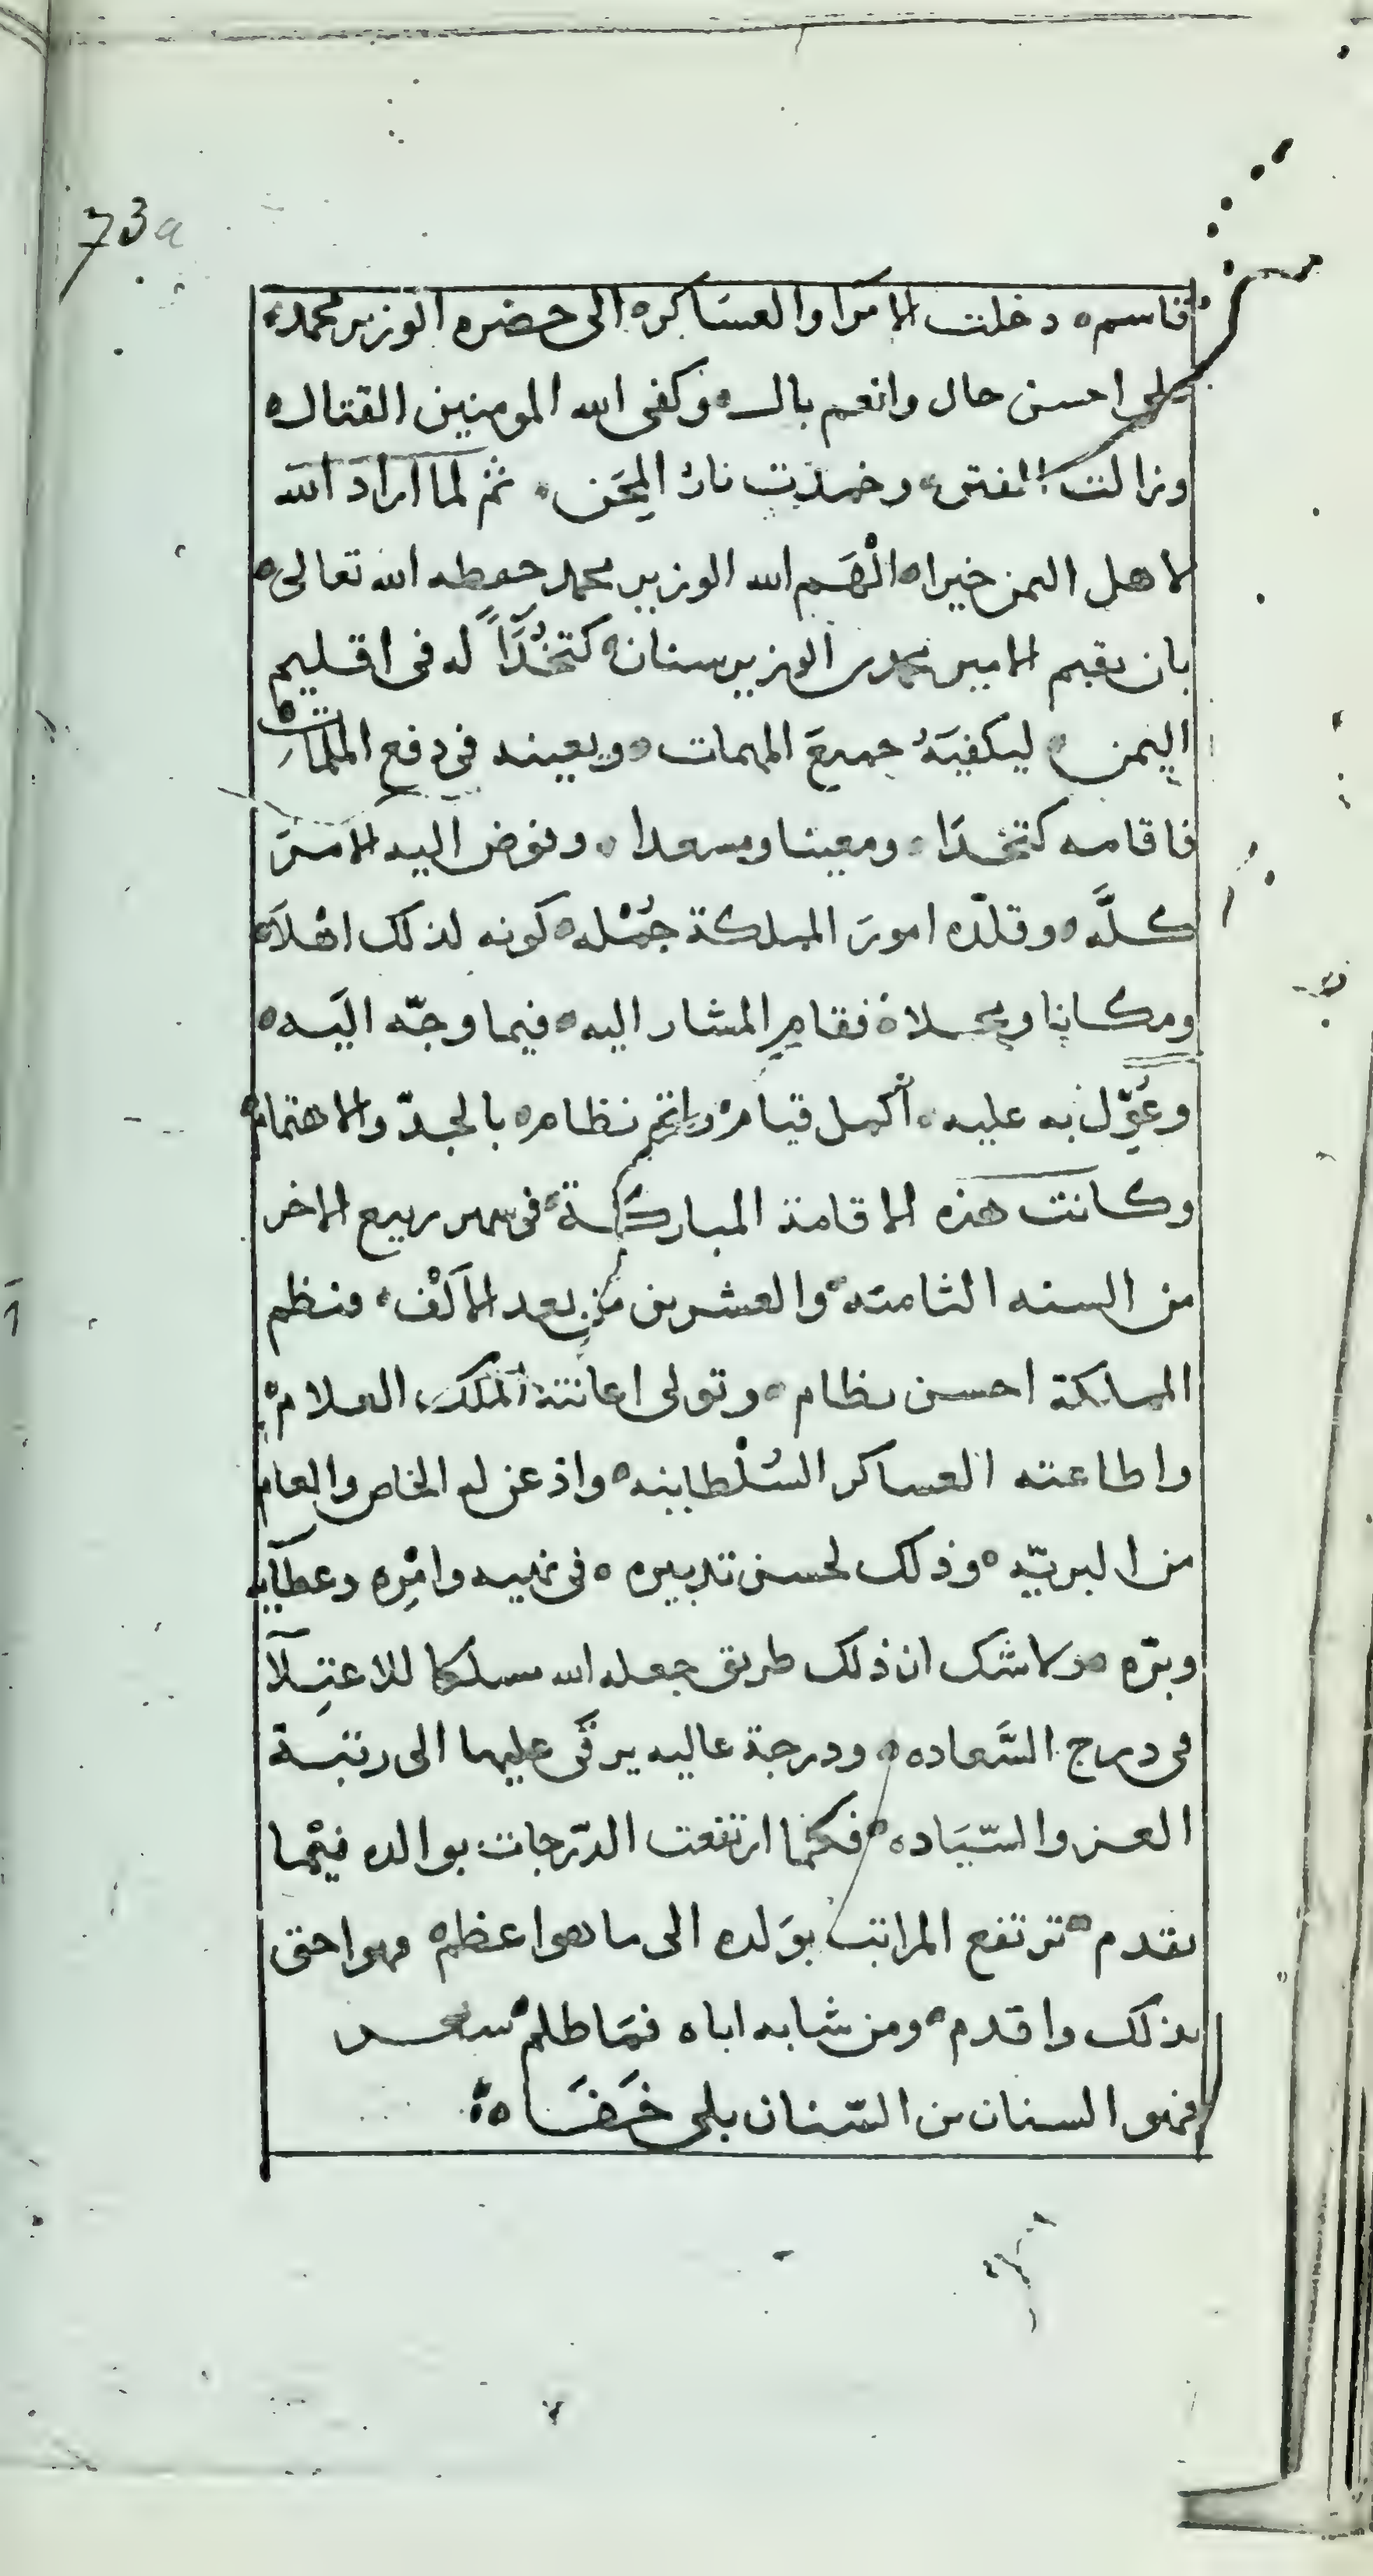 73a
قاسم ه دخلت الامرا والعساكر ه الى حضره الوزير محمد ه
على احسن حال وانعم بال ه وكفى الله المومنين القتال ه
وزالت الفتن ه وخمدت نارُ المِحَن ه ثم لما اراد الله
لاهل اليمن خيرا ه الْهَم الله الوزير محمد حفظه الله تعالى ه
بان يقيم الامير محمد بن الوزير سنان ه كتخُدَاً له فى اقليم
اليمن ه ليكفيَهُ جميعَ المهمات ه ويعينه فى دفع الملمات ه
فاقامه كتخدَا ه ومعينا ومسعدا ه وفوض اليه الامرَ
كلَّه ه وقلّده امورَ المملكة جُمْله ه كونه لذلك اهْلاَ ه
ومكانا ومحلا ه فقام المشار اليه ه فيما وجّه اليَه ه
وعُوِّل به عليه ه أكمل قيام ه واتم نظام ه بالجدّ والاهتمام ه
وكانت هذه الاقامة المباركة ه فى شهر ربيع الاخر
من السنه الثامنه ه والعشرين من بعد الاَلْف ه فنظم
المملكة احسن نظام ه وتولى اعانته الملك العلام ه
واطاعته العساكر السُلْطانيه ه واذعن له الخاص والعام
من البريّه ه وذلك لحسن تدبيره ه فى نهيه وامْرِه وعطآيه
وبرّه ه ولا شك ان ذلك طريق جعله الله مسلكا للاعتِلآ
فى درج السَّعاده ه ودرجة عاليه يرقَى عليها الى رتبة
العز والسّيَاده ه فكما ارتفعت الدّرجات بوالده فيْما
تقدم ه ترتفع المراتب بوَلده الى ما هو اعظم ه فهو احق
بذلك واقدم ه ومن شابه اباه فمَا ظلم ه شعـــر
فهو السنان من السّنان بلى خَفَا ه